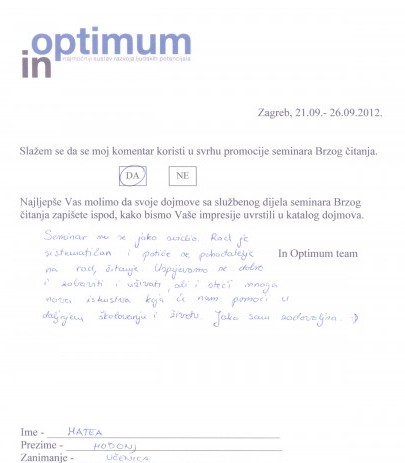 in optimum
najmoćniji sustav razvoja ljudskih potencijala
Zagreb, 21.09.- 26.09.2012.
Slažem se da se moj komentar koristi u svrhu promocije seminara Brzog čitanja.
DA NE
Najljepše Vas molimo da svoje dojmove sa službenog dijela seminara Brzog
čitanja zapišete ispod, kako bismo Vaše impresije uvrstili u katalog dojmova.
In Optimum team
Seminar mi se jako svidio. Rad je
sistematičan i potiče se
na rad, čitanje. Uspijevamo se dobro
i zabaviti i uživati, ali i steći mnoga
nova iskustva koja će nam pomoći u
daljnjem školovanju i životu. Jako sam zadovoljna. :)
Ime - MATEA
Prezime - HODONJ
Zanimanje - UČENICA